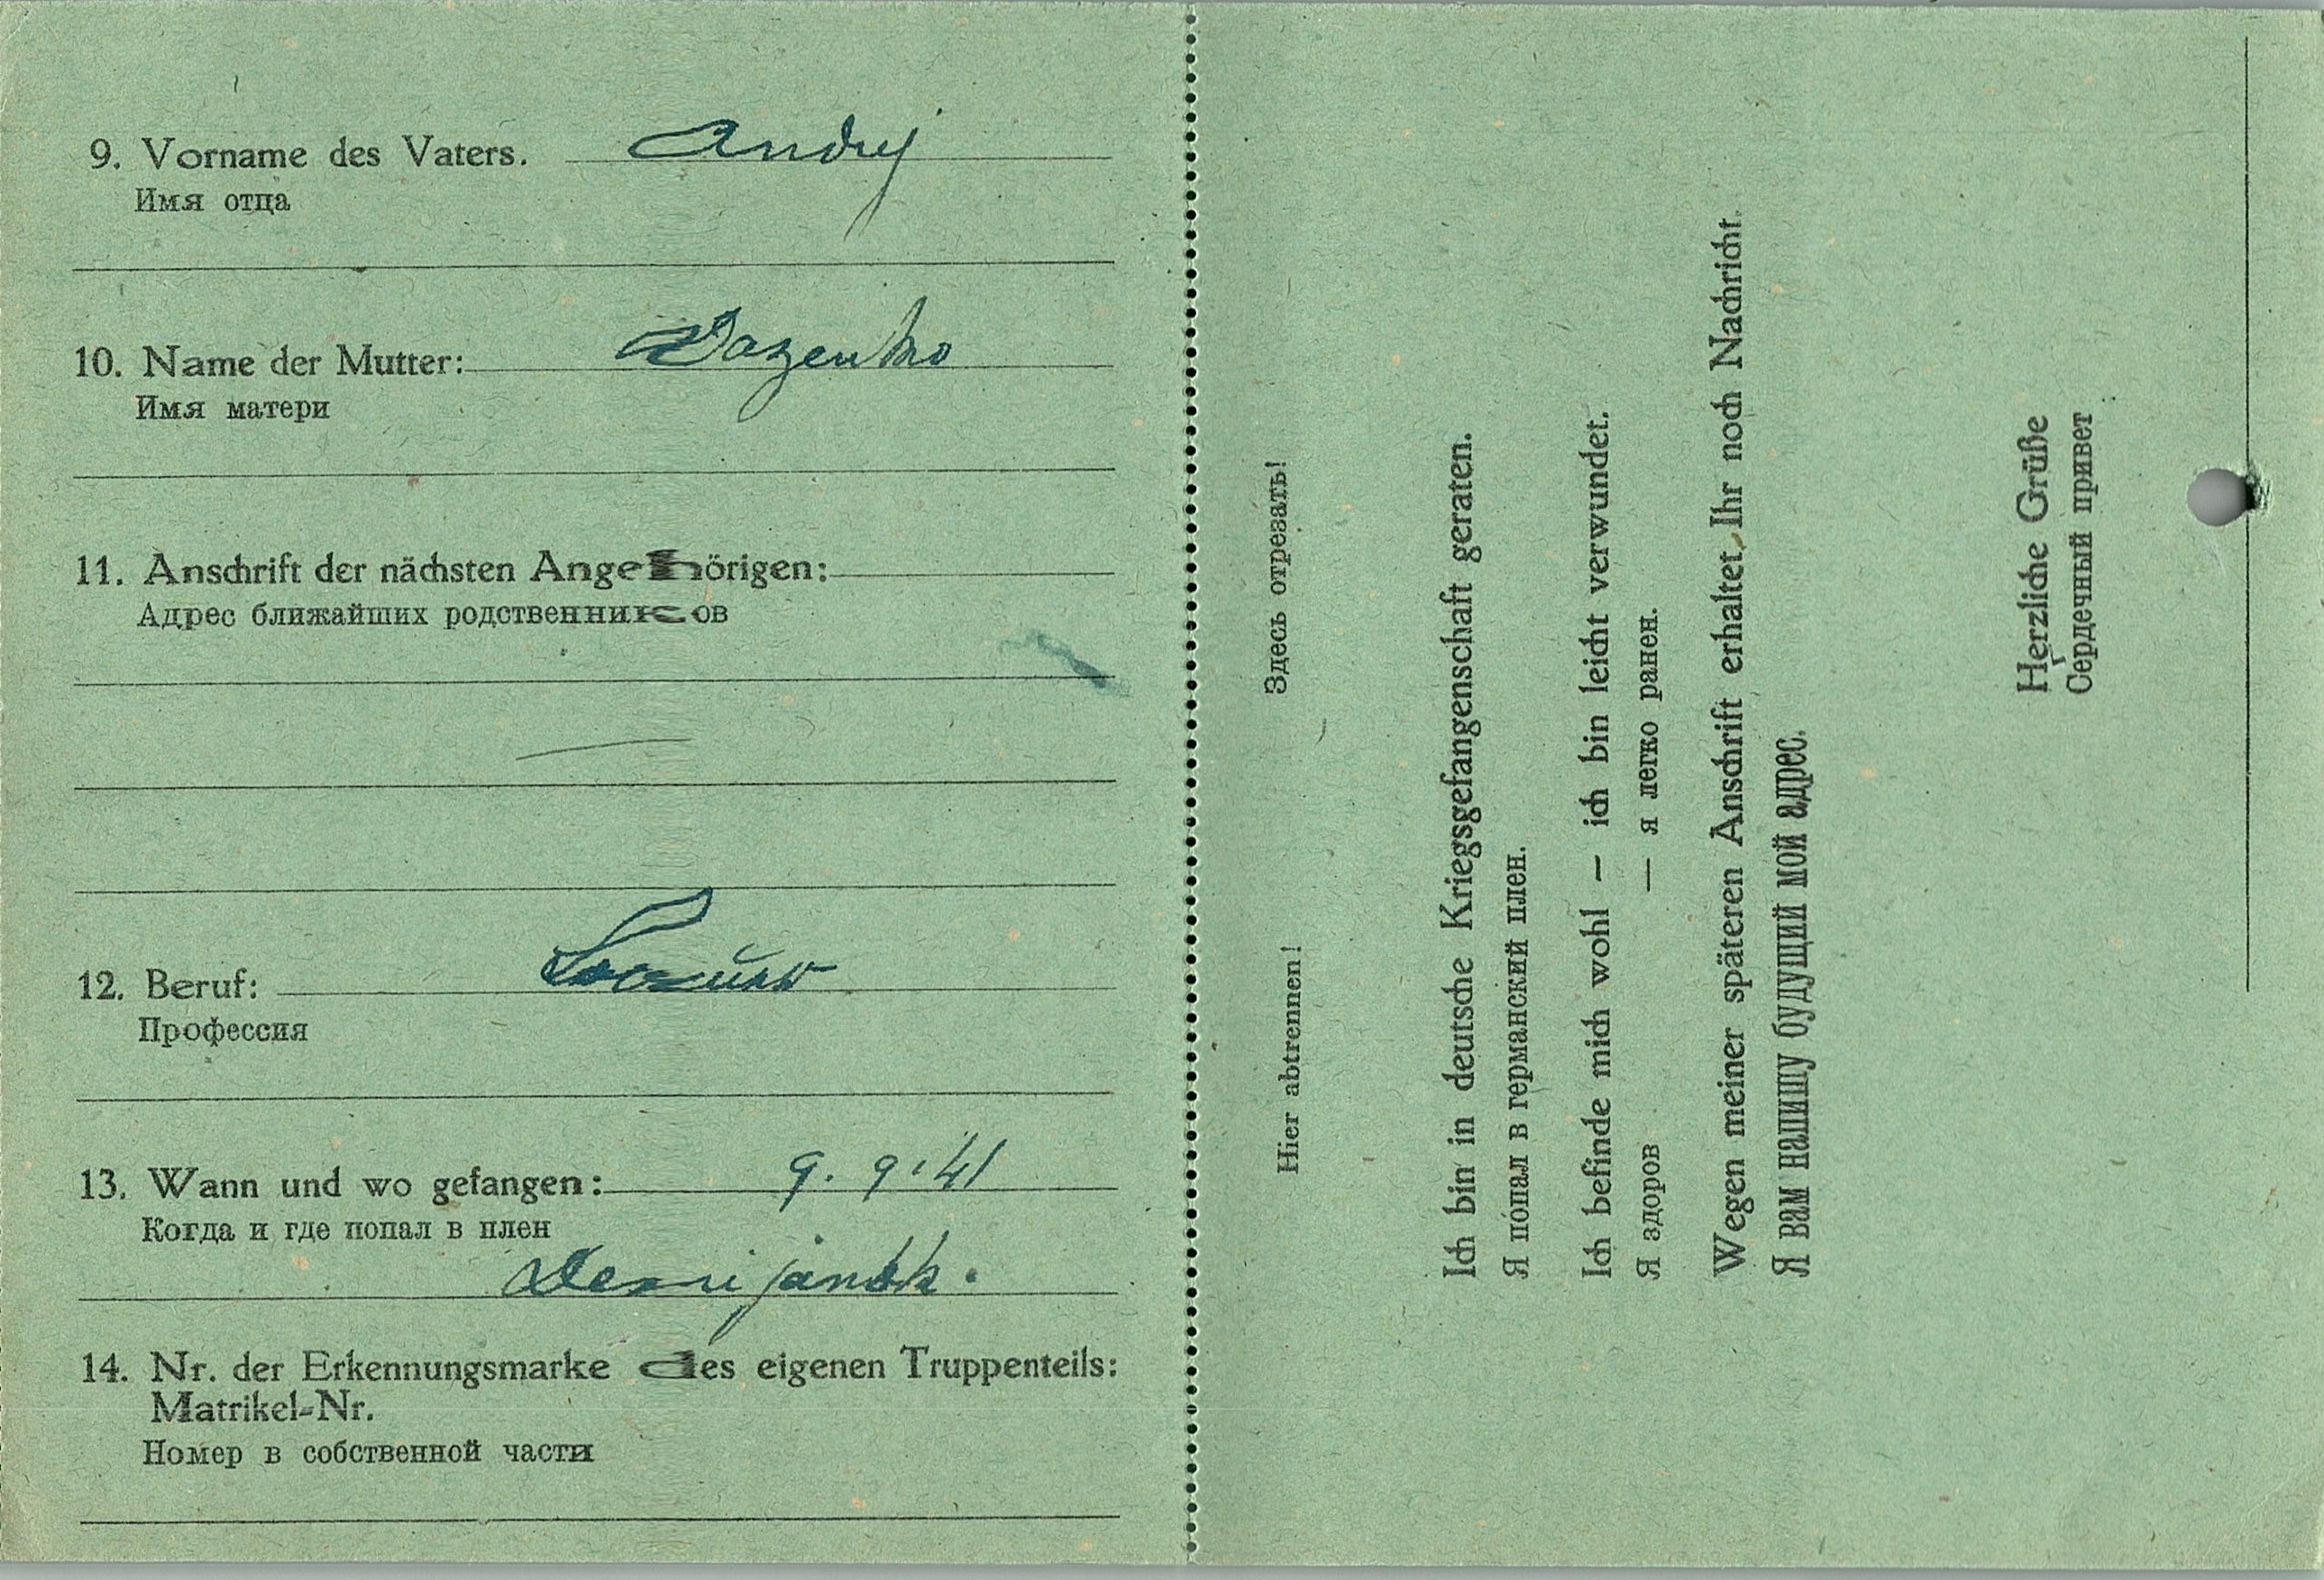 9. Vorname des Vaters. Andrej
Имя отца
10. Name der Mutter: Dazenko
Имя матери
11. Anschrift der nächsten Angehörigen:
Адрес ближайших родственников
12. Beruf:
Профессия
13. Wann und wo gefangen: 9. 9. 41
Когда и где попал в плен
14. Nr. der Erkennungsmarke des eigenen Truppenteils:
Matrikel-Nr.
Номер в собственной части
Hier abtrennen! Здесь отрезать!
Ich bin in deutsche Kriegsgefangenschaft geraten.
Я попал в германский плен.
Ich befinde mich wohl – ich bin leicht verwundet.
Я здоров — я легко ранен.
Wegen meiner späteren Anschrift erhaltet Ihr noch Nachricht.
Я вам напишу будущий мой адрес.
Herzliche Grüße
Сердечный привет